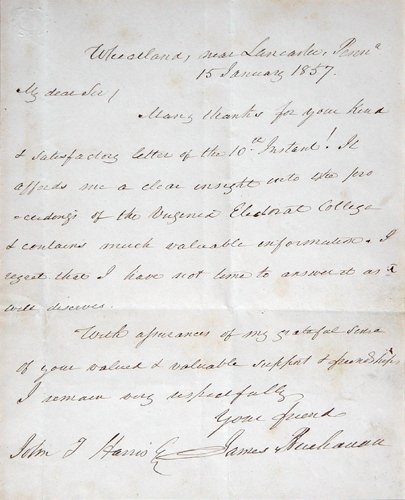 Wheatland, near Lancaster, Penna
15 January 1857.
My dear Sir/
Many thanks for your kind
& satisfactory letter of the 10th Instant! It
affords me a clear insight into the pro
ceedings of the Virginia Electoral College
& contains much valuable information. I
regret that I have not time to answer it as it
well deserves.
With assurances of my grateful sense
of your valued & valuable support & friendship
I remain very respectfully
Your friend
John T Harris Esq James Buchanan